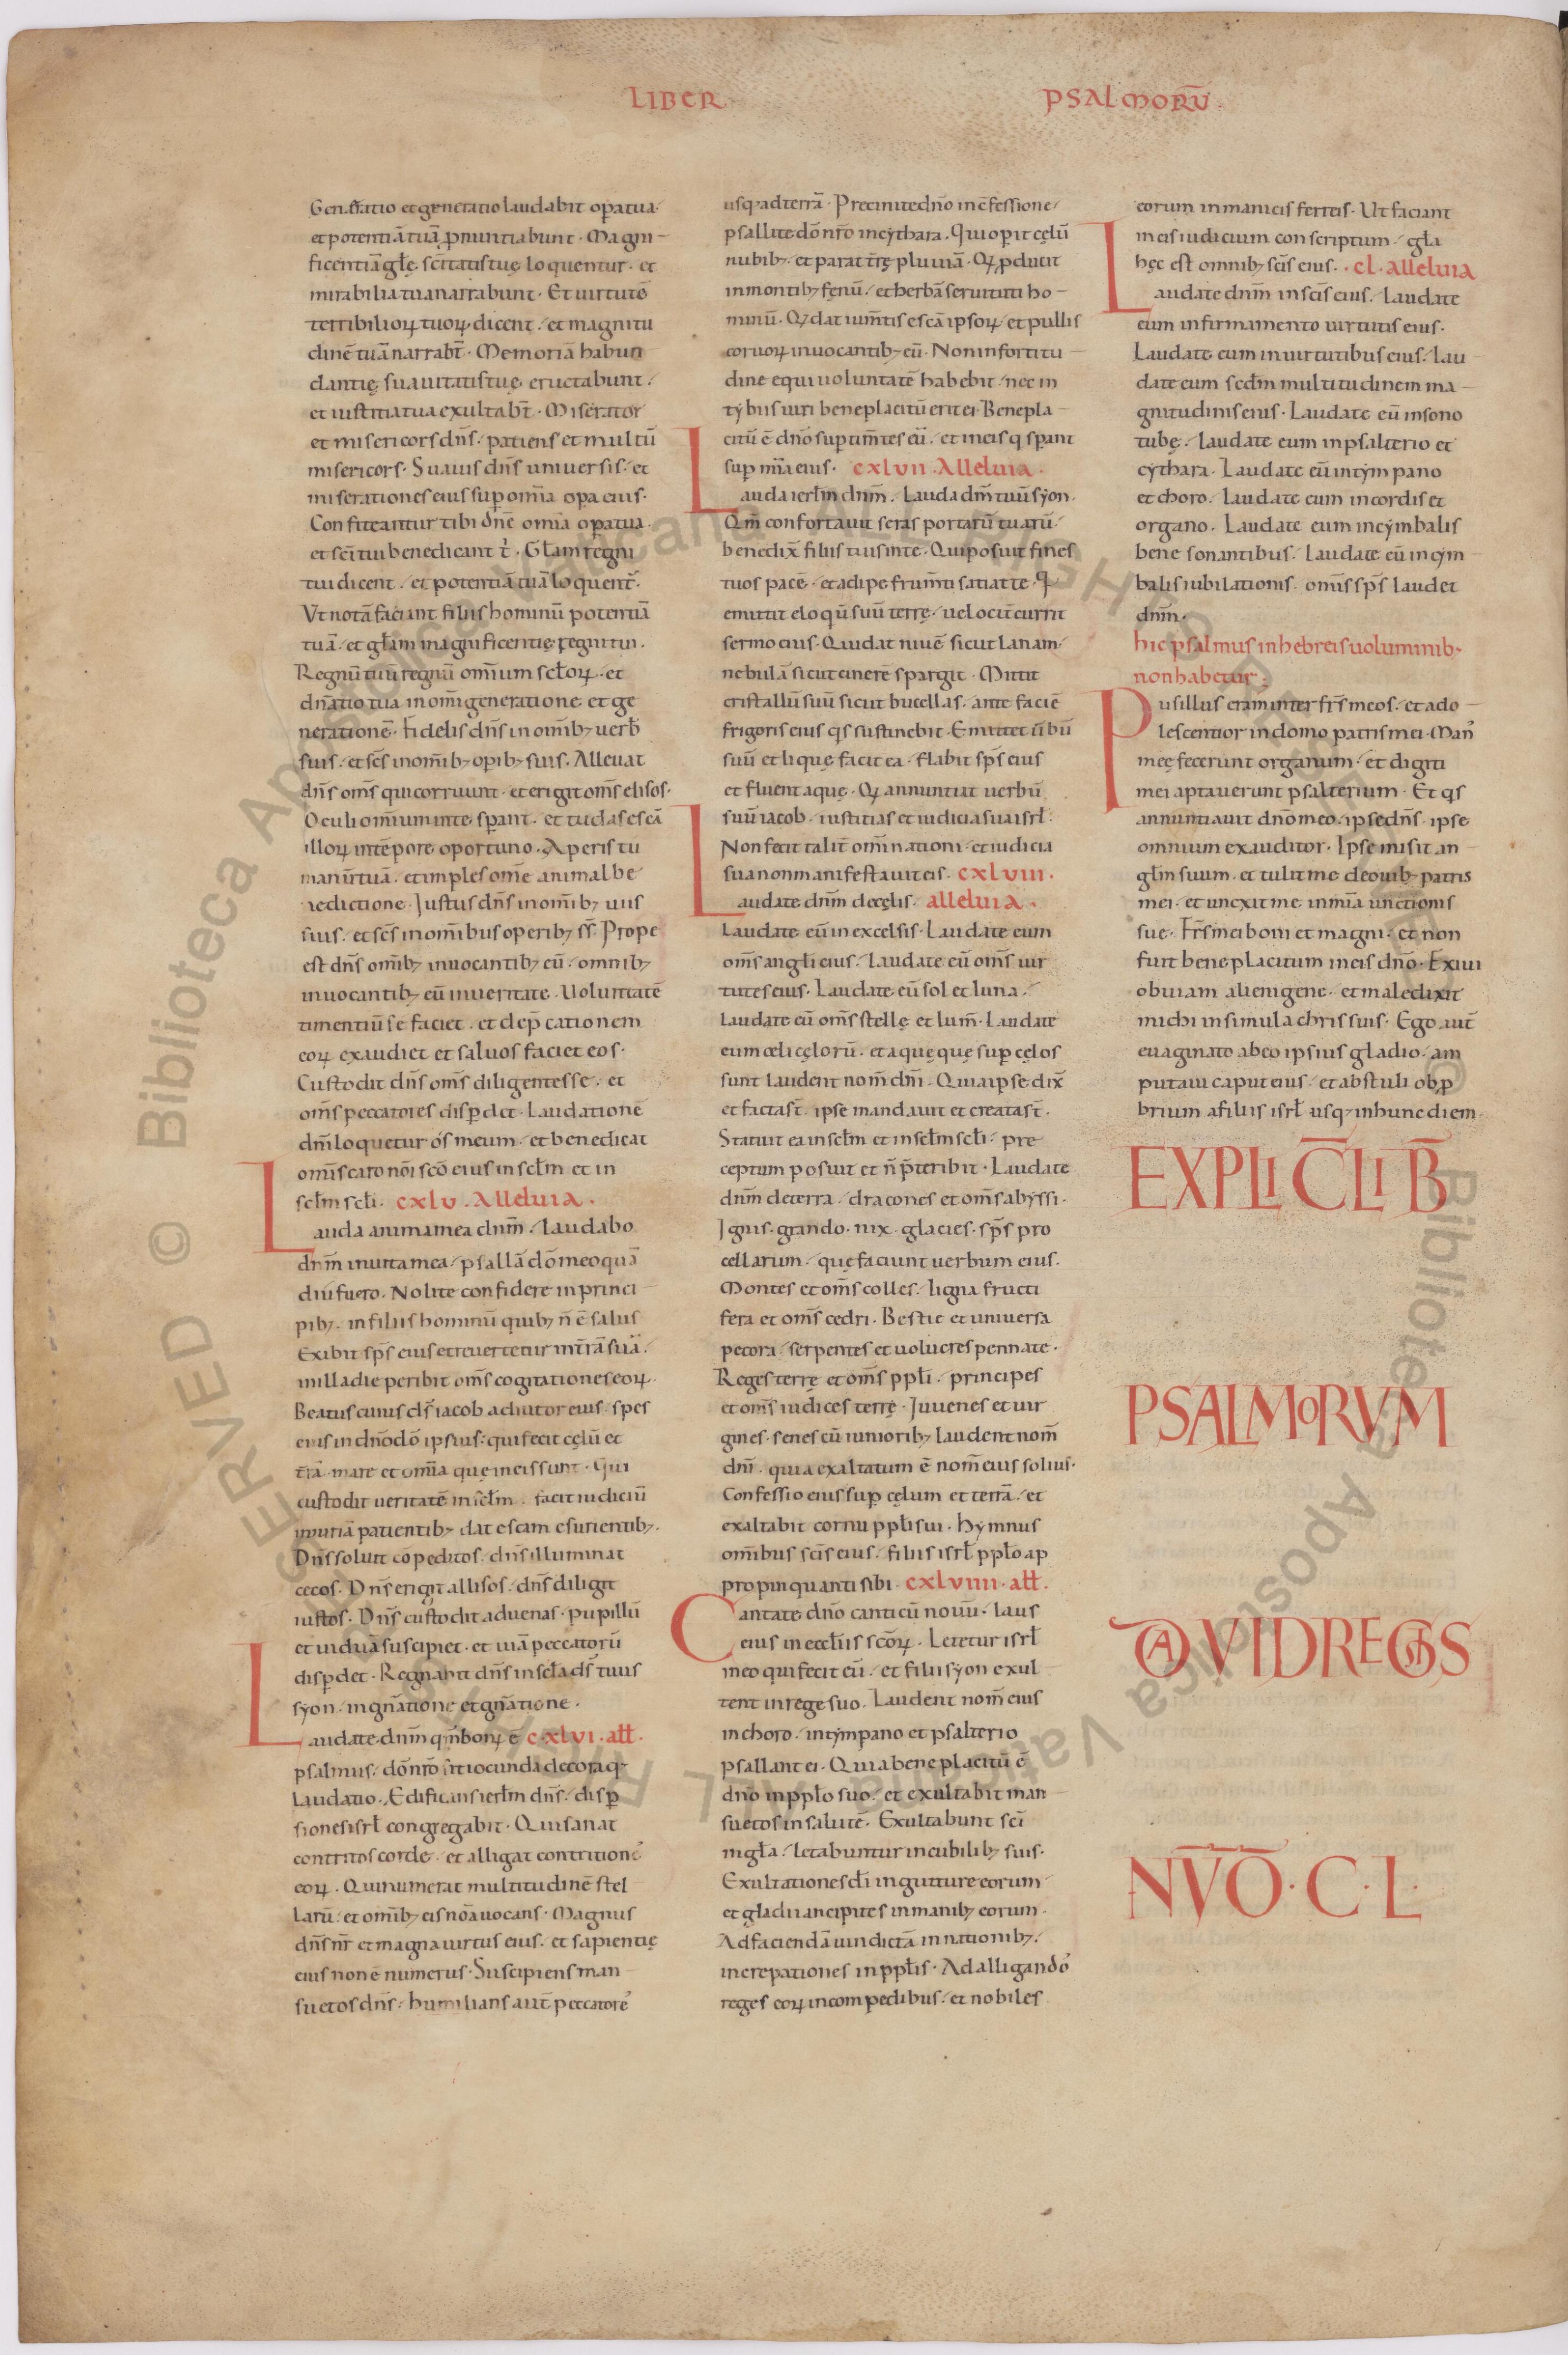 LIBER PSALMORŪ
Generatio et generatio laudabit opatua·
et potentiā tuā ꝓnuntiabunt · Magni
ficentiā glę scītatis tuę loquentur · et
mirabilia tua narrabunt · Et uirtutē
terribilioꝝ tuoꝝ dicent · et magnitu
dinē tuā narrabt̄ · Memoriā habun
dantię suauitatis tuę eructabunt ·
et iustitia tua exultabt̄ · Miserator
et misericors dn̄s · patiens et multū
misericors · Suauis dn̄s uniuersis · et
miserationes eius sup om̄ia opa eius ·
Confiteantur tibi dn̄e om̄ia opa tua ·
et sc̄i tui benedicant t̄ · Głam regni
tui dicent · et potentiā tuā loquent̄ ·
Vt notā faciant filiis hominū potentiā
tuā · et głam magnificentię regni tui ·
Regnū tuū regnū om̄ium scłoꝝ · et
dn̄atio tua in om̄i generatione et ge
nerationē · Fidelis dn̄s in om̄ibꝫ uerb̄
suis · et sc̄s in om̄ibꝫ opibꝫ suis · Alleuat
dn̄s om̄s qui corruunt · et erigit om̄s elisos ·
Oculi om̄ium in te spant · et tu das escā
illoꝝ in tēpore oportuno · Aperis tu
manū tuā · et imples om̄e animal be
nedictione · Iustus dn̄s in om̄ibꝫ uiis
suis · et sc̄s in om̄ibus operibꝫ ss̄ · Prope
est dn̄s om̄ibꝫ inuocantibꝫ eū · omnibꝫ
inuocantibꝫ eū in ueritate · Voluntatē
timentiū se faciet · et dep̄cationem
eoꝝ exaudiet et saluos faciet eos ·
Custodit dn̄s om̄s diligentes se · et
om̄s peccatores dispdet · Laudationē
dn̄i loquetur os meum · et benedicat
om̄is caro nōi scō eius in scłm et in
scłm scłi · cxlv · Alleluia ·
Lauda anima mea dn̄m · laudabo
dn̄m in uita mea · psallā dō meo quā
diu fuero · Nolite confidere in princi
pibꝫ · in filiis hominū quibꝫ n̄ ē salus
Exibit sp̄s eius et reuertetur in t̄rā suā ·
in illa die peribit om̄s cogitationes eoꝝ ·
Beatus cuius ds̄ iacob adiutor eius · spes
eius in dn̄o dō ipsius · qui fecit cęlū et
t̄rā · mare et om̄ia que in eis sunt · Qui
custodit ueritatē in scłm · facit iudiciū
iniuriā patientibꝫ dat escam esurientibꝫ ·
Dn̄s soluit cōpeditos · dn̄s illuminat
cecos · Dn̄s erigit allisos · dn̄s diligit
iustos · Dn̄s custodit aduenas · pupillū
et uiduā suscipiet · et uiā peccatorū
dispdet · Regnabit dn̄s in scła ds̄ tuus
syon · in gn̄atione et gn̄atione ·
Laudate dn̄m qm̄ bonꝝ ē cxlvi · ałł ·
psalmus · dō nr̄o sit iocunda decoraq
Laudatio · Edificans ierłm dn̄s · disp
siones isrł congregabit · Qui sanat
contritos corde · et alligat contritionē
eoꝝ · Qui numerat multitudinē stel
larū · et om̄ibꝫ eis nōa uocans · Magnus
dn̄s nr̄ et magna uirtus eius · et sapientię
eius non ē numerus · Suscipiens man
suetos dn̄s · humilians aut̄ peccatore
usqꝫ ad terrā · Precinite dn̄o in cfessione
psallite dō nr̄o in cythara · Qui opit cęlū
nubibꝫ · et parat t̄rę pluuiā · Qꝫ ꝓducit
in montibꝫ fęnū · et herbā seruituti ho
minū · Qꝫ dat ium̄tis escā ipsoꝝ · et pullis
coruoꝝ inuocantibꝫ eū · Non in fortitu
dine equi uoluntatē habebit · nec in
tybiis uiri beneplacitū erit ei · Benepla
citū ē dn̄o sup tim̄tes eū · et in eis q spant
sup mīa eius · cxlvii · Alleluia ·
Lauda ierłm dn̄m · Lauda dm̄ tuū syon ·
Qm̄ confortauit seras portarū tuarū
benedix̄ filiis tuis in te · Qui posuit fines
tuos pacē · et adipe frum̄ti satiat te · Q
emittit eloqū suū terrę · uelocit̄ currit
sermo eius · Qui dat niuē sicut lanam
nebulā sicut cinerē spargit · Mittit
cristallū suū sicut bucellas · ante faciē
frigoris eius qs sustinebit · Emittet ūbū
suū et liquefaciet ea · flabit sp̄s eius
et fluent aquę · Qꝫ annuntiat uerbū
suū iacob · iustitias et iudicia sua isrł ·
Non fecit talit̄ om̄i nationi · et iudicia
sua non manifestauit eis · cxlviii ·
Laudate dn̄m de cęlis · alleluia ·
Laudate eū in excelsis · Laudate eum
om̄s angłi eius · laudate eū om̄s uir
tutes eius · Laudate eū sol et luna ·
laudate eū om̄s stellę et lum̄ · Laudate
eum cęli cęlorū · et aquę quę sup cęlos
sunt laudent nom̄ dn̄i · Quia ipse dix̄
et facta st̄ · ipse mandauit et creata st̄ ·
Statuit ea in scłm et in scłm scłi · pre
ceptum posuit et n̄ p̄teribit · Laudate
dn̄m de terra · dracones et om̄s abyssi ·
Ignis · grando · nix · glacies · sp̄s pro
cellarum · que faciunt uerbum eius ·
Montes et om̄s colles · ligna fructi
fera et om̄s cedri · Bestie et uniuersa
pecora · serpentes et uolucres pennate ·
Reges terrę et om̄s ppłi · principes
et om̄s iudices terrę · Iuuenes et uir
gines · senes cū iunioribꝫ laudent nom̄
dn̄i · quia exaltatum ē nom̄ eius solius ·
Confessio eius sup cęlum et terrā · et
exaltabit cornu ppłi sui · hymnus
om̄ibus sc̄is eius · filiis isrł ppło ap
propinquanti sibi · cxlviiii · ałł ·
Cantate dn̄o canticū nouū · laus
eius in eccłiis sc̄oꝝ · Letetur isrł
in eo qui fecit eū · et filii syon exul
tent in rege suo · Laudent nom̄ eius
in choro · in tympano et psalterio
psallant ei · Quia beneplacitū ē
dn̄o in ppło suo · et exultabit man
suetos in salutē · Exultabunt sc̄i
in gła · letabuntur in cubilibꝫ suis ·
Exultationes dī in gutture eorum
et gladii ancipites in manibꝫ eorum ·
Ad faciendā uindictā in nationibꝫ ·
increpationes in ppłis · Ad alligandos
reges eoꝝ in compedibus · et nobiles
eorum in manicis ferreis · Ut faciant
in eis iudicium conscriptum · gła
hęc est omnibꝫ sc̄is eius · · cl · alleluia
Laudate dn̄m in sc̄is eius · Laudate
eum in firmamento uirtutis eius ·
Laudate eum in uirtutibus eius · lau
date eum scdm̄ multitudinem ma
gnitudinis eius · Laudate eū in sono
tubę · laudate eum in psalterio et
cythara · Laudate eū in tympano
et choro · laudate eum in cordis et
organo · Laudate eum in cymbalis
bene sonantibus · laudate eū in cym
balis iubilationis · om̄is sp̄s laudet
dn̄m ·
hic psalmus in hebreis uoluminibꝫ
non habetur ·
Pusillus eram inter fr̄s meos · et ado
lescentior in domo patris mei · Man᾽
meę fecerunt organum · et digiti
mei aptauerunt psalterium · Et qs
annuntiauit dn̄o meo · ipse dn̄s · ipse
omnium exauditor · Ipse misit an
głm suum · et tulit me de ouibꝫ patris
mei · et unxit me in mīa unctionis
sue · Fr̄s mei boni et magni · et non
fuit beneplacitum in eis dn̄o · Exiui
obuiam alienigene · et maledixit
michi in simulachris suis · Ego aut̄
euaginato ab eo ipsius gladio · am
putaui caput eius · et abstuli obp
brium a filiis isrł usqꝫ in hunc diem ·
EXPLIC̄ LIB̄
PSALMORVM
DAVID REGIS
NV̄Ō · C · L ·
© Biblioteca Apostolica Vaticana ALL RIGHTS RESERVED
© Biblioteca Apostolica Vaticana ALL RIGHTS RESERVED